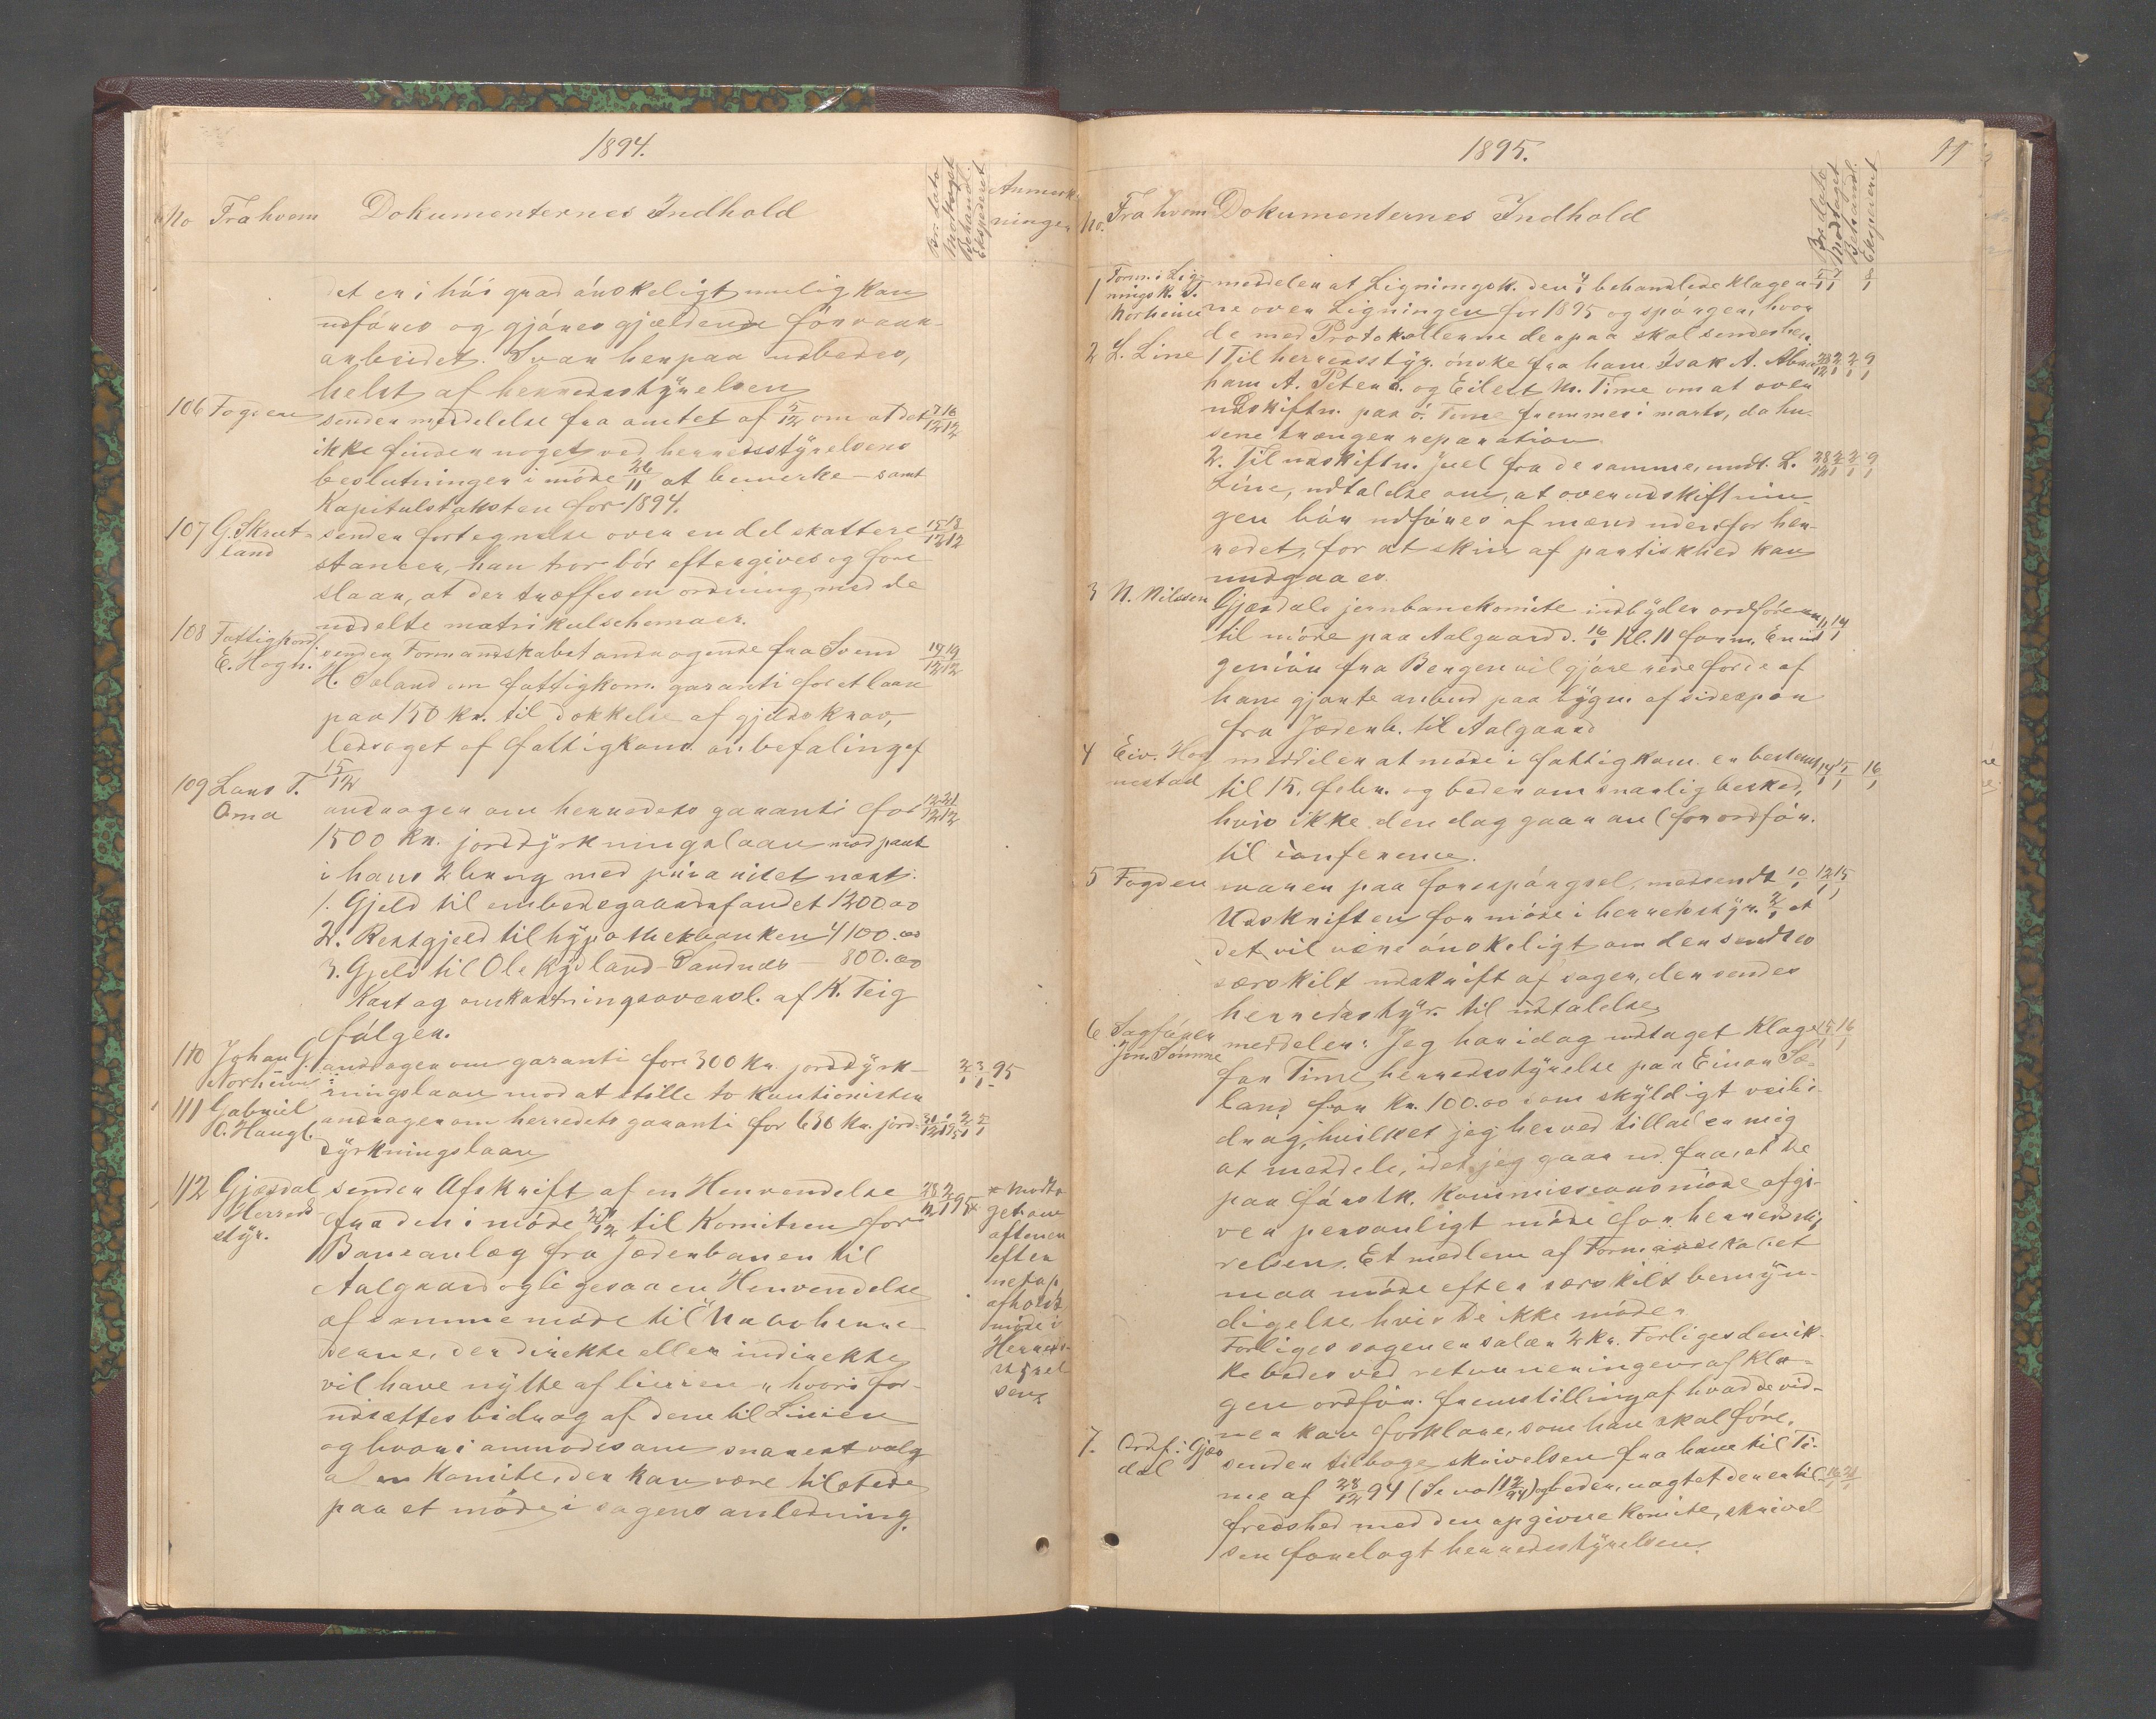 1894.
No Fra hvem Dokumenternes Indhold Br. dato Modtaget Behandl. Ekspederet Anmerk-
ninger
det er i høi grad ønskeligt mulig kan
udføres og gjøres gjældende før vaar-
arbeidet. Svar herpaa udbedes,
helst af herredsstyrelsen
106 Fogden sender meddelelse fra amtet af 5/12 om at det 7/12 16/12
ikke finder noget ved herredsstyrelsens
beslutninger i møde 26/11 at bemerke – samt
Kapitulstaksten for 1894.
107 G. Skret- sender fortegnelse over en del skattere- 15/12 18/12
land
stanser, han tror bør eftergives og fore
slaar, at der træffes en ordning med de
uddelte matrikulschemaer.
108 Fattigford. sender Formandskabet andragende fra Svend 15/12 19/12
E. Hogn. H. Søland om fattigkom. garanti for et laan
paa 150 kr. til dækkelse af gjeldskrav,
ledsaget af fattigkom. anbefaling af
15/12
109 Lars T. andrager om herredets garanti for 12/12 21/12
Oma
1500 Kr. jorddyrkningslaan mod pant
i hans 2 brug med prioritet næst:
1. Gjeld til embedsgaardsfondet 1200.00
2. Restgjeld til hypothekbanken 4100.00
3. Gjeld til Ole Kydland Sandnes – 800.00
Kart og omkostningsoversl. af K. Teig
følger.
110 Johan G. andrager om garanti for 300 Kr. jorddyrk- 2/1 3/1 95
Norheim ningslaan mod at stille to kautionister
111 Gabriel andrager om herredets garanti for 630 Kr. jord-
O. Haugl. dyrkningslaan
112 Gjæsdal sender Afskrift af en Henvendelse 28/12 2/1 95 *
Herreds fra den i møde til Komiteen for
styr. Baneanlæg fra Jæderbanen til
Aalgaard og ligesaa en Henvendelse
af samme møde til "Naboherre-
derne, der direkte eller indirekte
vil have nytte af linien", hvori for-
udsættes bidrag af dem til Linien
og hvori anmodes om snarest valg
af en Komite, der kan være tilstede
paa et møde i sagens anledning.
* Modta
get om
aftenen
efter
netop
afholdt
møde i
Herreds-
styrel
sen
1895. 11
No. Fra hvem Dokumenternes Indhold Br. dato Modtaget Behandl. Ekspederet
1 Form. i Lig- meddeler at Ligningsk. den 4/1 behandlede klager-
ningsk. J.
Norheim ne over Ligningen for 1895 og spørger, hvor
de med Protokollerne derpaa skal sendes hen.
2 L. Line 1 Til herredsstyr. ønske fra ham Isak A. 28/12 2/1 2/1 9/1
ham A. Peters. og Eilert M. Time om at over
udskiftn. paa ø. Time fremmes i marts, da hu-
sene trænger reparation
2. Til udskiftn. Juel fra de samme, undt. L. 28/12 2/1 2/1 9/1
Line, udtalelse om, at overudskiftnin-
gen bør udføres af mænd udenfor her-
redet, for at skin af partiskhed kan
undgaaes.
3 N. Nilssen Gjæsdals jernbanekomite indbyder ordføreren 11/1 14/1
til møde paa Aalgaard d. 16/1 Kl. 11 form. En in-
geniør fra Bergen vil gjøre rede for de af
ham gjorte anbud paa bygn. af sidespor
fra Jæderb. til Aalgaard
4 Eiv. Hog meddeler at møde i fattigkom. er bestemt 14/1 15/1 16/1
nestad til 15. febr. og beder om snarlig besked,
hvis ikke den dag gaar an (for ordfør.
til conference.
5 Fogden svarer paa forespørgsel, medsendt 10/1 12/1 15/1
Udskriften for møde i herredsstyr. 2/1 at
det vil være ønskeligt om der sendtes
særskilt udskrift af sager, der sendes
herredsstyr. til udtalelse
6 Sagfører meddeler: Jeg har idag udtaget Klage 15/1 16/1
Jon. Sømme for Time herredsstyrelse paa Einar Sø-
land for Kr. 100.00 som skyldigt veibi-
drag, hvilket jeg herved tillader mig
at meddele, idet jeg gaar ud fra, at De
paa førstk. Kommissionsmøde afgi-
ver personligt møde for herredssty-
relsen. Et medlem af Formandskabet
maa møde efter særskilt bemyn-
digelse, hvis De ikke møder.
Forliges sagen er salær 2 kr. Forliges den ik-
ke bedes ved returneringen af Kla-
gen ordfør. fremstilling af hvad de vid-
ner kan forklare, som han skal føre.
7. Ordf. i Gjæs sender tilbage skrivelsen fra ham til Ti-
dal me af 28/12 94 (Se no 112/94) og beder, uagtet den er til- 16/1 21/1
fredshed med den opgivne komite, skrivel
sen forelagt herredsstyrelsen.